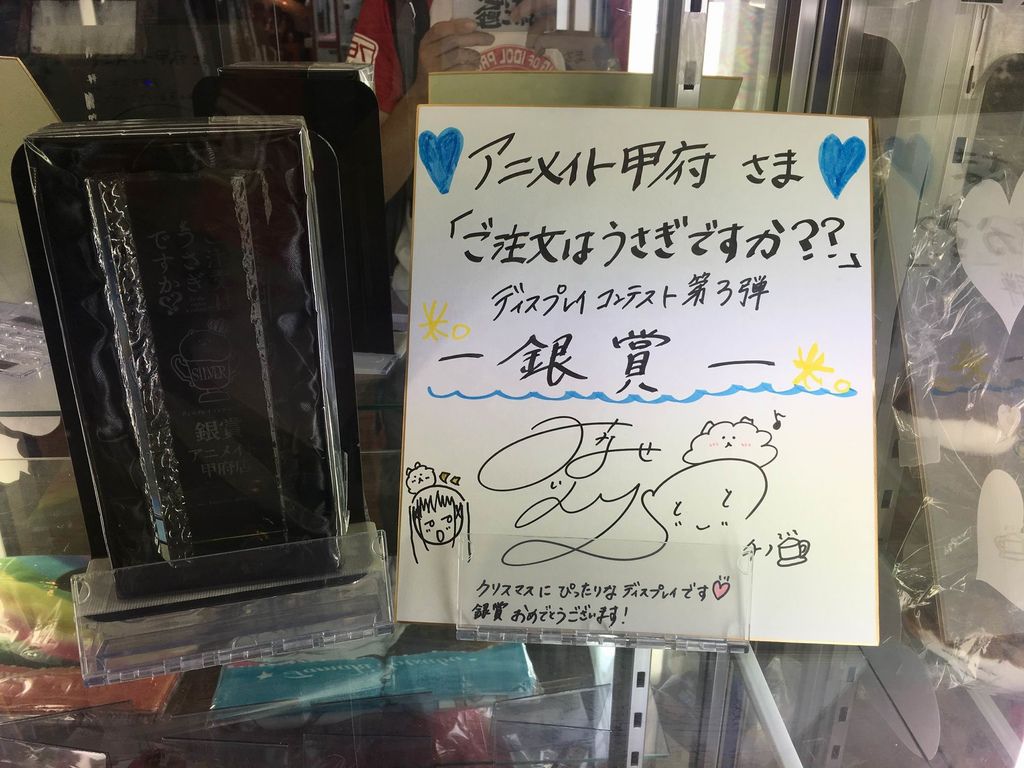 アニメイト甲府 さま
「ご注文はうさぎですか??」
ディスプレイコンテスト第3弾
－銀賞－
チノ
クリスマスに ぴったりな ディスプレイです
銀賞 おめでとうございます!
ご注文は
うさぎ
ですか
SILVER
銀賞
アニメイト
甲府店